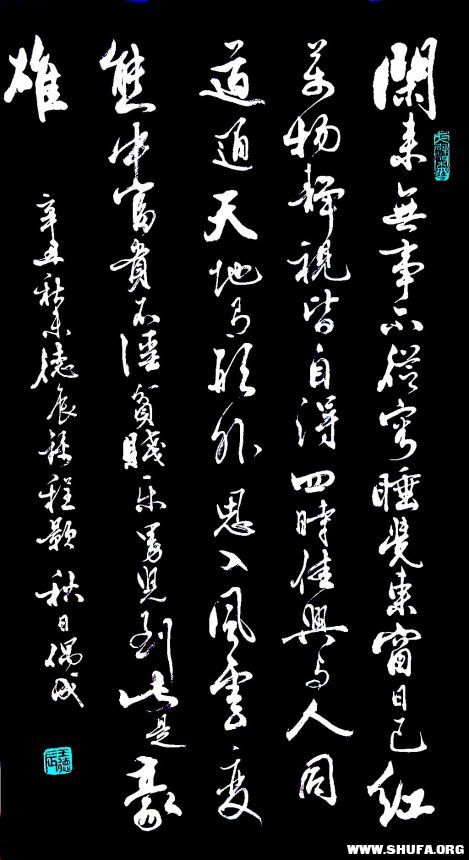 閑來無事不從容睡覺東窗日已紅
萬物靜視皆自得四時佳興与人同
道通天地有形外思入風雲变
態中富貴不淫貧賤樂男兒到此是豪
雄
辛丑秋末德辰錄程顥秋日偶成
WWW.SHUFA.ORG